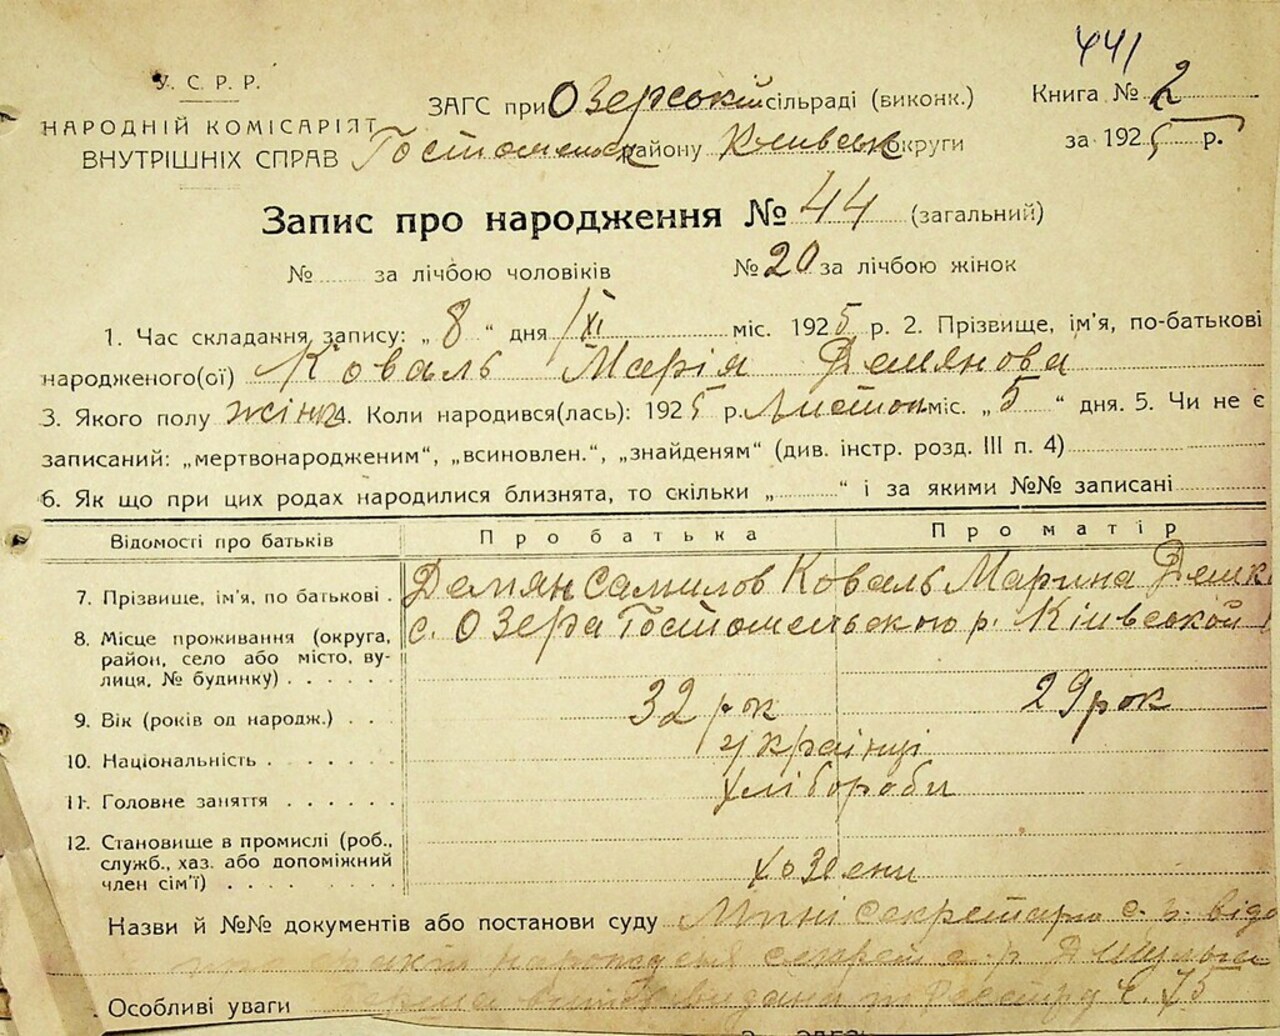 441
У. С. Р. Р.
НАРОДНІЙ КОМІСАРІЯТ
ВНУТРІШНІХ СПРАВ
ЗАГС при Озерській сільраді (виконк.)
Гостомельск району Київськ округи
Книга № 2
за 1925 р.
Запис про народження № 44 (загальний)
№ ...... за лічбою чоловіків № 20 за лічбою жінок
1. Час складання запису: „ 8 “ дня /XI міс. 1925 р. 2. Прізвище, ім'я, по-батькові
народженого(ої) Коваль Марія Демянова
3. Якого полу жіноч 4. Коли народився(лась): 1925 р. Листоп міс. „ 5 “ дня. 5. Чи не є
записаний: „мертвонародженим“, „всиновлен.“, „знайденям“ (див. інстр. розд. III п. 4)
6. Як що при цих родах народилися близнята, то скільки „ ......... “ і за якими №№ записані
Відомості про батьків Про батька Про матір
7. Прізвище, ім'я, по батькові . Демян Самилов Коваль Марина
8. Місце проживання (округа, с. Озера Гостомельского р. Київської
район, село або місто, ву-
лиця, № будинку) . . . . . .
9. Вік (років од народж.) . . 32 рок 29 рок
10. Національність . . . . . . українці
11. Головне заняття . . . . . . хлібороби
12. Становище в промислі (роб., хозяени
служб., хаз. або допоміжний
член сім'ї) . . . . . . . . .
Назви й №№ документів або постанови суду Мині секретарю с. р. відо
секрет с. р.
Особливі уваги видана ч. 75